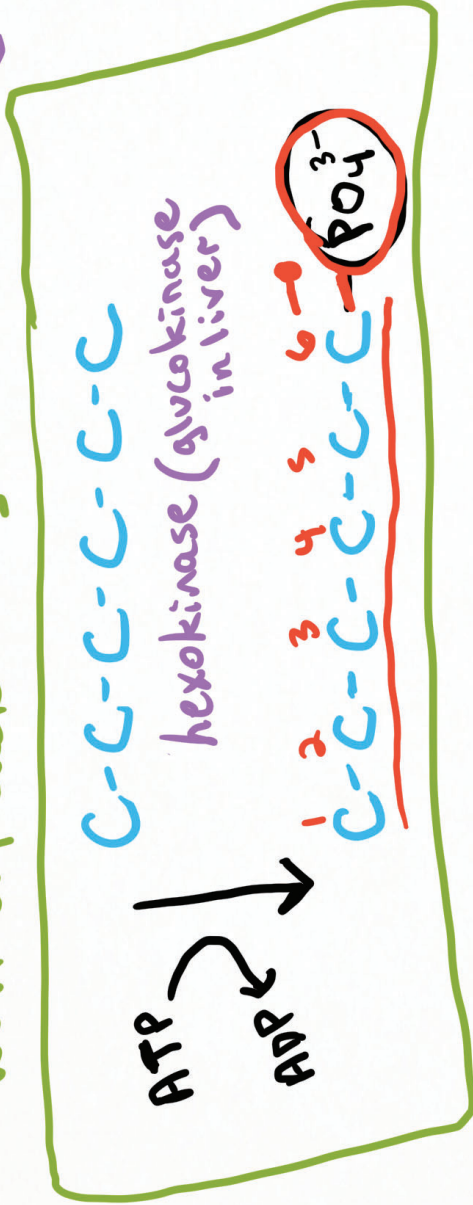 C-C-C-C-C-C
ATP
hexokinase (glucokinase
in liver)
ADP
1 2 3 4 5 6
C-C-C-C-C-C
PO4 3-